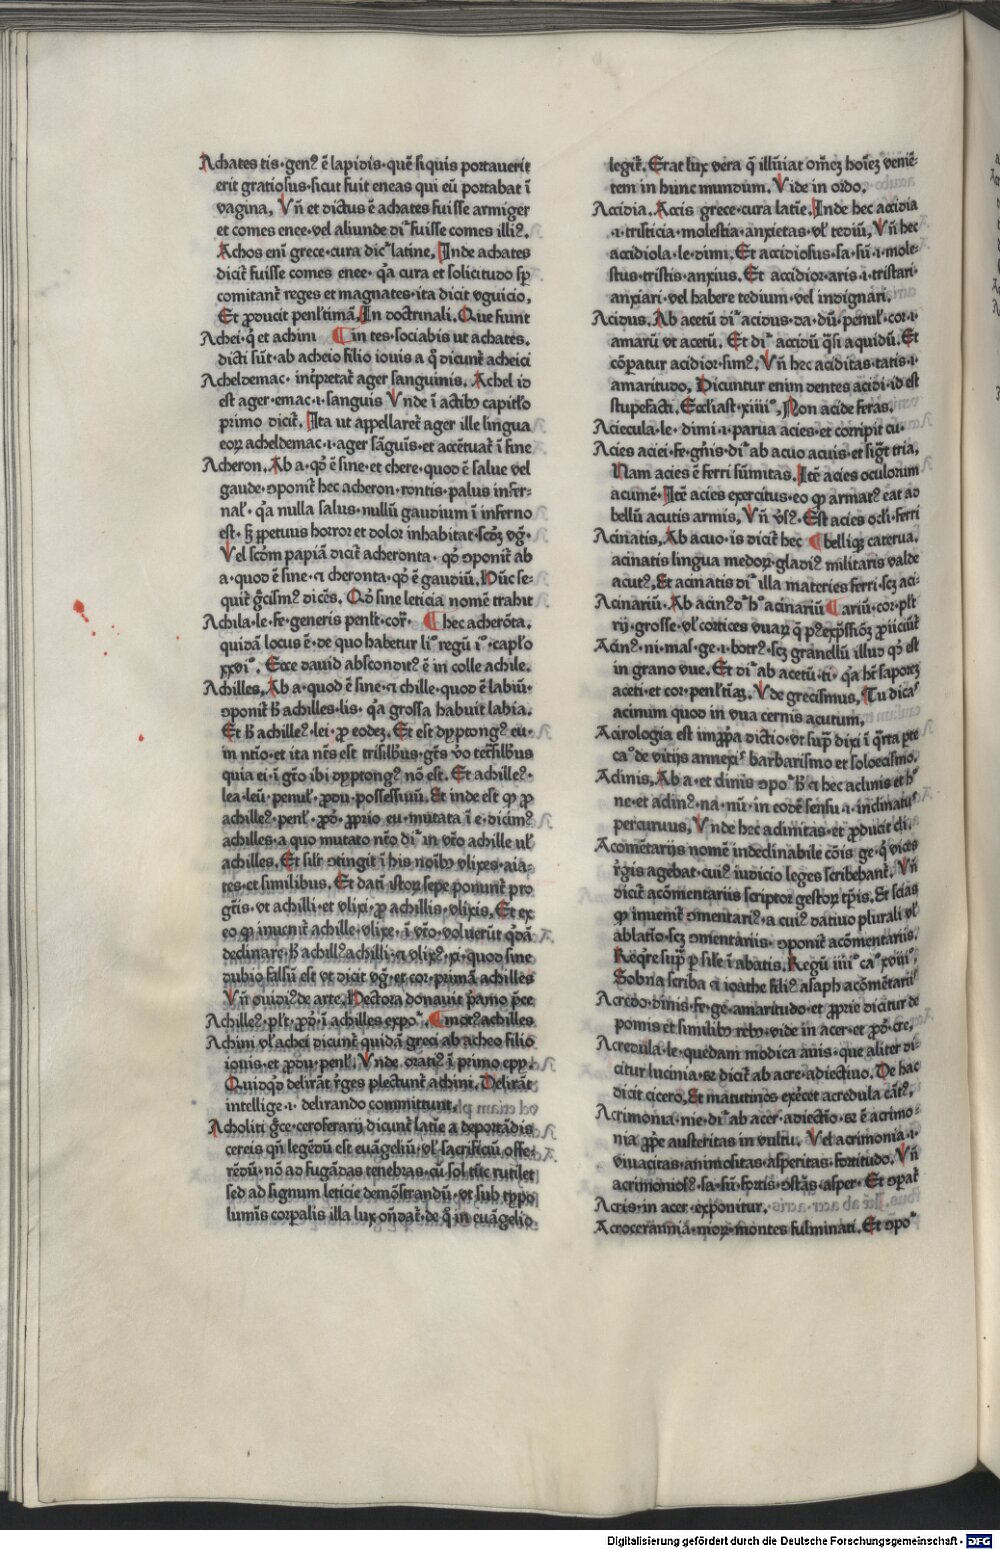 Achates tis·gen⁹ ē lapidis·quē si quis portauerit
erit gratiosus·sicut fuit eneas qui eū portabat ī
vagina. Vn̄ et dictus ē achates fuisse armiger
et comes enee·vel aliunde dr̄ fuisse comes illi⁹.
Achos eni grece·cura dic̄ latine. Inde achates
dicit̄ fuisse comes enee·qa cura et solicitudo sp̄
comitant̄ reges et magnates·ita dicit vguicio.
Et ꝓducit penl̄timā. In doctrinali. Que fiunt
Achei·q̄ et achini ¶ in tes·sociabis ut achates.
dicti sūt·ab acheio filio iouis a q̄ dicunt̄ acheici
Acheldemac·inr̄pretat̄ ager sanguinis. Achel id
est ager·emac·i·sanguis Vnde ī actibꝫ capitl̄o
primo dicit̄. Ita ut appellaret̄ ager ille lingua
eoꝝ acheldemac·i·ager sāguīs·et accētuat̄ ī fine
Acheron. Ab a·qd̄ ē sine·et chere·quod ē salue vel
gaude·ↄponit̄ hec acheron·rontis·palus infer-
nal̄·qa nulla salus·nullū gaudium ī inferno
est·sꝫ ꝑpetuus horror et dolor inhabitat·scd̄ꝫ vḡ·
Vel scd̄m papiā dicit̄ acheronta·qd̄ ↄponit̄ ab
a·quod ē sine·⁊ cheronta·qd̄ ē gaudiū. Hūc se-
quit̄ ḡcism⁹ dicēs. Qd̄ sine leticia nomē trahit
Achila·le·fe·generis penl̄t·cor̄. ¶ hec acherōta.
quidā locus ē·de quo habetur li° regū i°·capl̄o
xxvi°. Ecce dauid abscondit⁹ ē in colle achile.
Achilles. Ab a·quod ē sine·⁊ chille·quod ē labiū·
ↄponit̄ h̄ achilles·lis·qa grossa habuit labia.
Et h̄ achille⁹·lei·ꝓ eodeꝫ. Et est dyptong⁹ eu·
in ntīo·et ita nr̄s est trisilbus·gr̄s v̄o tetrasilbus
quia ei·i ḡto ibi dyptong⁹ nō est. Et achille⁹·
lea·leū·penul̄·ꝓdu·possessiuū. Et inde est qꝫ ꝓ
achille⁹·penl̄·ꝓd̄·ꝓprio eu·mutata ī e·dicim⁹
achilles·a quo mutato nt̄o di͂ in vt̄o achille ul̄
achilles. Et sil̄r ↄtingit ī his noībꝫ vlixes·aia-
tes·et similibus. Et dat̄ istoꝝ sepe ponunt̄ pro
gt̄is·vt achilli·et vlixi·ꝓ achillis·vlixis. Et ex
eo qꝫ inuenit̄ achille·vlixe·ī vt̄o·voluerūt qd̄ā
declinare·h̄ achill⁹ achilli·⁊ vlix⁹·xi·quod sine
dubio falsū est vt dicit vḡ·et cor·primā achilles
Vn̄ ouidi⁹ de arte. Hectora donauit p̄amo p̄ce
Achille⁹·pl̄t·ꝓd̄·ī achilles expo͂. ¶ mot⁹ achilles
Achini vl̄ achei dicunt̄ quidā greci ab acheo filio
iouis·et ꝓdu·penl̄. Vnde orati⁹ ī primo epp̄.
Quidqd̄ delirāt r̄ges plectunt̄ achini. Delirāt
intellige·i·delirando committunt.
Acholiti ḡce·ceroferarij dicunt̄ latīe a deportādis
cereis qn̄ legēdū est euāgeliū·vl̄ sacrificiū offe-
rēdū·nō ad fugādas tenebras·cū sol tūc rutilet
sed ad signum leticie demōstrandū·vt sub typo
lumīs corpalis illa lux oñdat̄·de q̄ in euāgelio
legit̄. Erat lux vera q̄ illūiat om̄eꝫ hoīeꝫ veniē-
tem in hunc mundum. Vide in ordo.
Accidia. Accis grece·cura latīe. Inde hec accidia
·i·tristicia·molestia·anxietas·vl̄ tediū. Vn̄ hec
accidiola·le·dimi. Et accidiosus·sa·sū·i·mole-
stus·tristis·anxius. Et accidior·aris·i·tristari·
anxiari·vel habere tedium·vel indignari.
Acidus. Ab acetū di͂ acidus·da·dū·penul̄·cor·i·
amarū vt acetū. Et di͂ accidū q̄si aquidū. Et
cōparatur acidior·sim⁹. Vn̄ hec aciditas·tatis·i·
amaritudo. Dicuntur enim dentes acidi·id est
stupefacti. Eccl̄iast·xiiii°. Non acide feras.
Aciecula·le·dimi·i·parua acies·et corripit cu·
Acies aciei·fe·gn̄is·di͂ ab acuo acuis·et sigt̄ tria.
Nam acies ē ferri sūmitas. Itē acies oculorum
acumē. Itē acies exercitus·eo qꝫ armat⁹ eat ad
bellū acutis armis. Vn̄ vs̄⁹. Est acies ocl̄i·ferri
Acinatis. Ab acuo·is dicit̄ hec ¶ belliqꝫ caterua.
acinatis lingua medoꝝ·gladi⁹ militaris valde
acut⁹. Et acinatis di͂ illa materies ferri·scꝫ aci-
Acinariū. Ab acin⁹ d͂ h° acinariū ¶ ariū·cor·pl̄t
rij·grosse·vl̄ cortices vuaꝝ q̄ p⁹ exp̄ssiōꝫ ꝓiiciūt̄
Acin⁹·ni·mas·ge·i·botr⁹·scꝫ granellū illud qd̄ est
in grano vue. Et di͂ ab acetū·ti·qa hꝫ saporeꝫ
aceti·et cor·penl̄tīaꝫ. Vde grecismus. Tu dicas
acimum quod in vua cernis acutum.
Acirologia est imꝓpa dictio·vt sup̄ dixi ī q̄rta pte
ca° de vitijs annexis barbarismo et soloecismo.
Aclinis. Ab a·et clinis ↄpo͂ h̄ ⁊ hec aclinis et h°
ne·et aclin⁹·na·nū·in eodē sensu·i·inclinatus
percuruus. Vnde hec aclinitas·et ꝓducit cli.
Acomētarijs nomē indeclinabile cōis ge·q̄ vices
r̄gis agebat·cui⁹ iudicio leges scribebant̄. Vn̄
dicit̄ acōmentariis scriptor gestoꝝ tp̄is. Et scias
qꝫ inuenit̄ ↄmentari⁹·a cui⁹ datiuo plurali vl̄
ablatīo·scꝫ ↄmentariis·ↄponit̄ acōmentariis.
Req̄re sup̄ ꝑ sil̄e ī abatis. Regū iiii° ca° xviii°.
Sobna scriba ⁊ ioathe fili⁹ asaph acōmētarii⁹
Acredo·dinis·fe·ge·amaritudo·et ꝓprie dicitur de
pomis et similibꝫ rebꝫ·vide in acer·et ꝓd̄·cre.
Acredula·le·quedam modica auis·que aliter di-
citur lucinia·⁊ dicit̄ ab acre·adiectiuo. De hac
dicit cicero. Et matutinos exēcet acredula cāt⁹.
Acrimonia·nie·di͂ ab acer·adiectīo·⁊ ē acrimo-
nia ꝓpe austeritas in vultu. Vel acrimonia·i·
viuacitas·animositas·asperitas·fortitudo. Vn̄
acrimonios⁹·sa·sū·fortis·ↄstās·asper·Et ↄpat̄
Acris·in acer·exponitur.
Acroceraunia·nioꝝ·montes fulminati. Et ↄpo͂
Digitalisierung gefördert durch die Deutsche Forschungsgemeinschaft - DFG